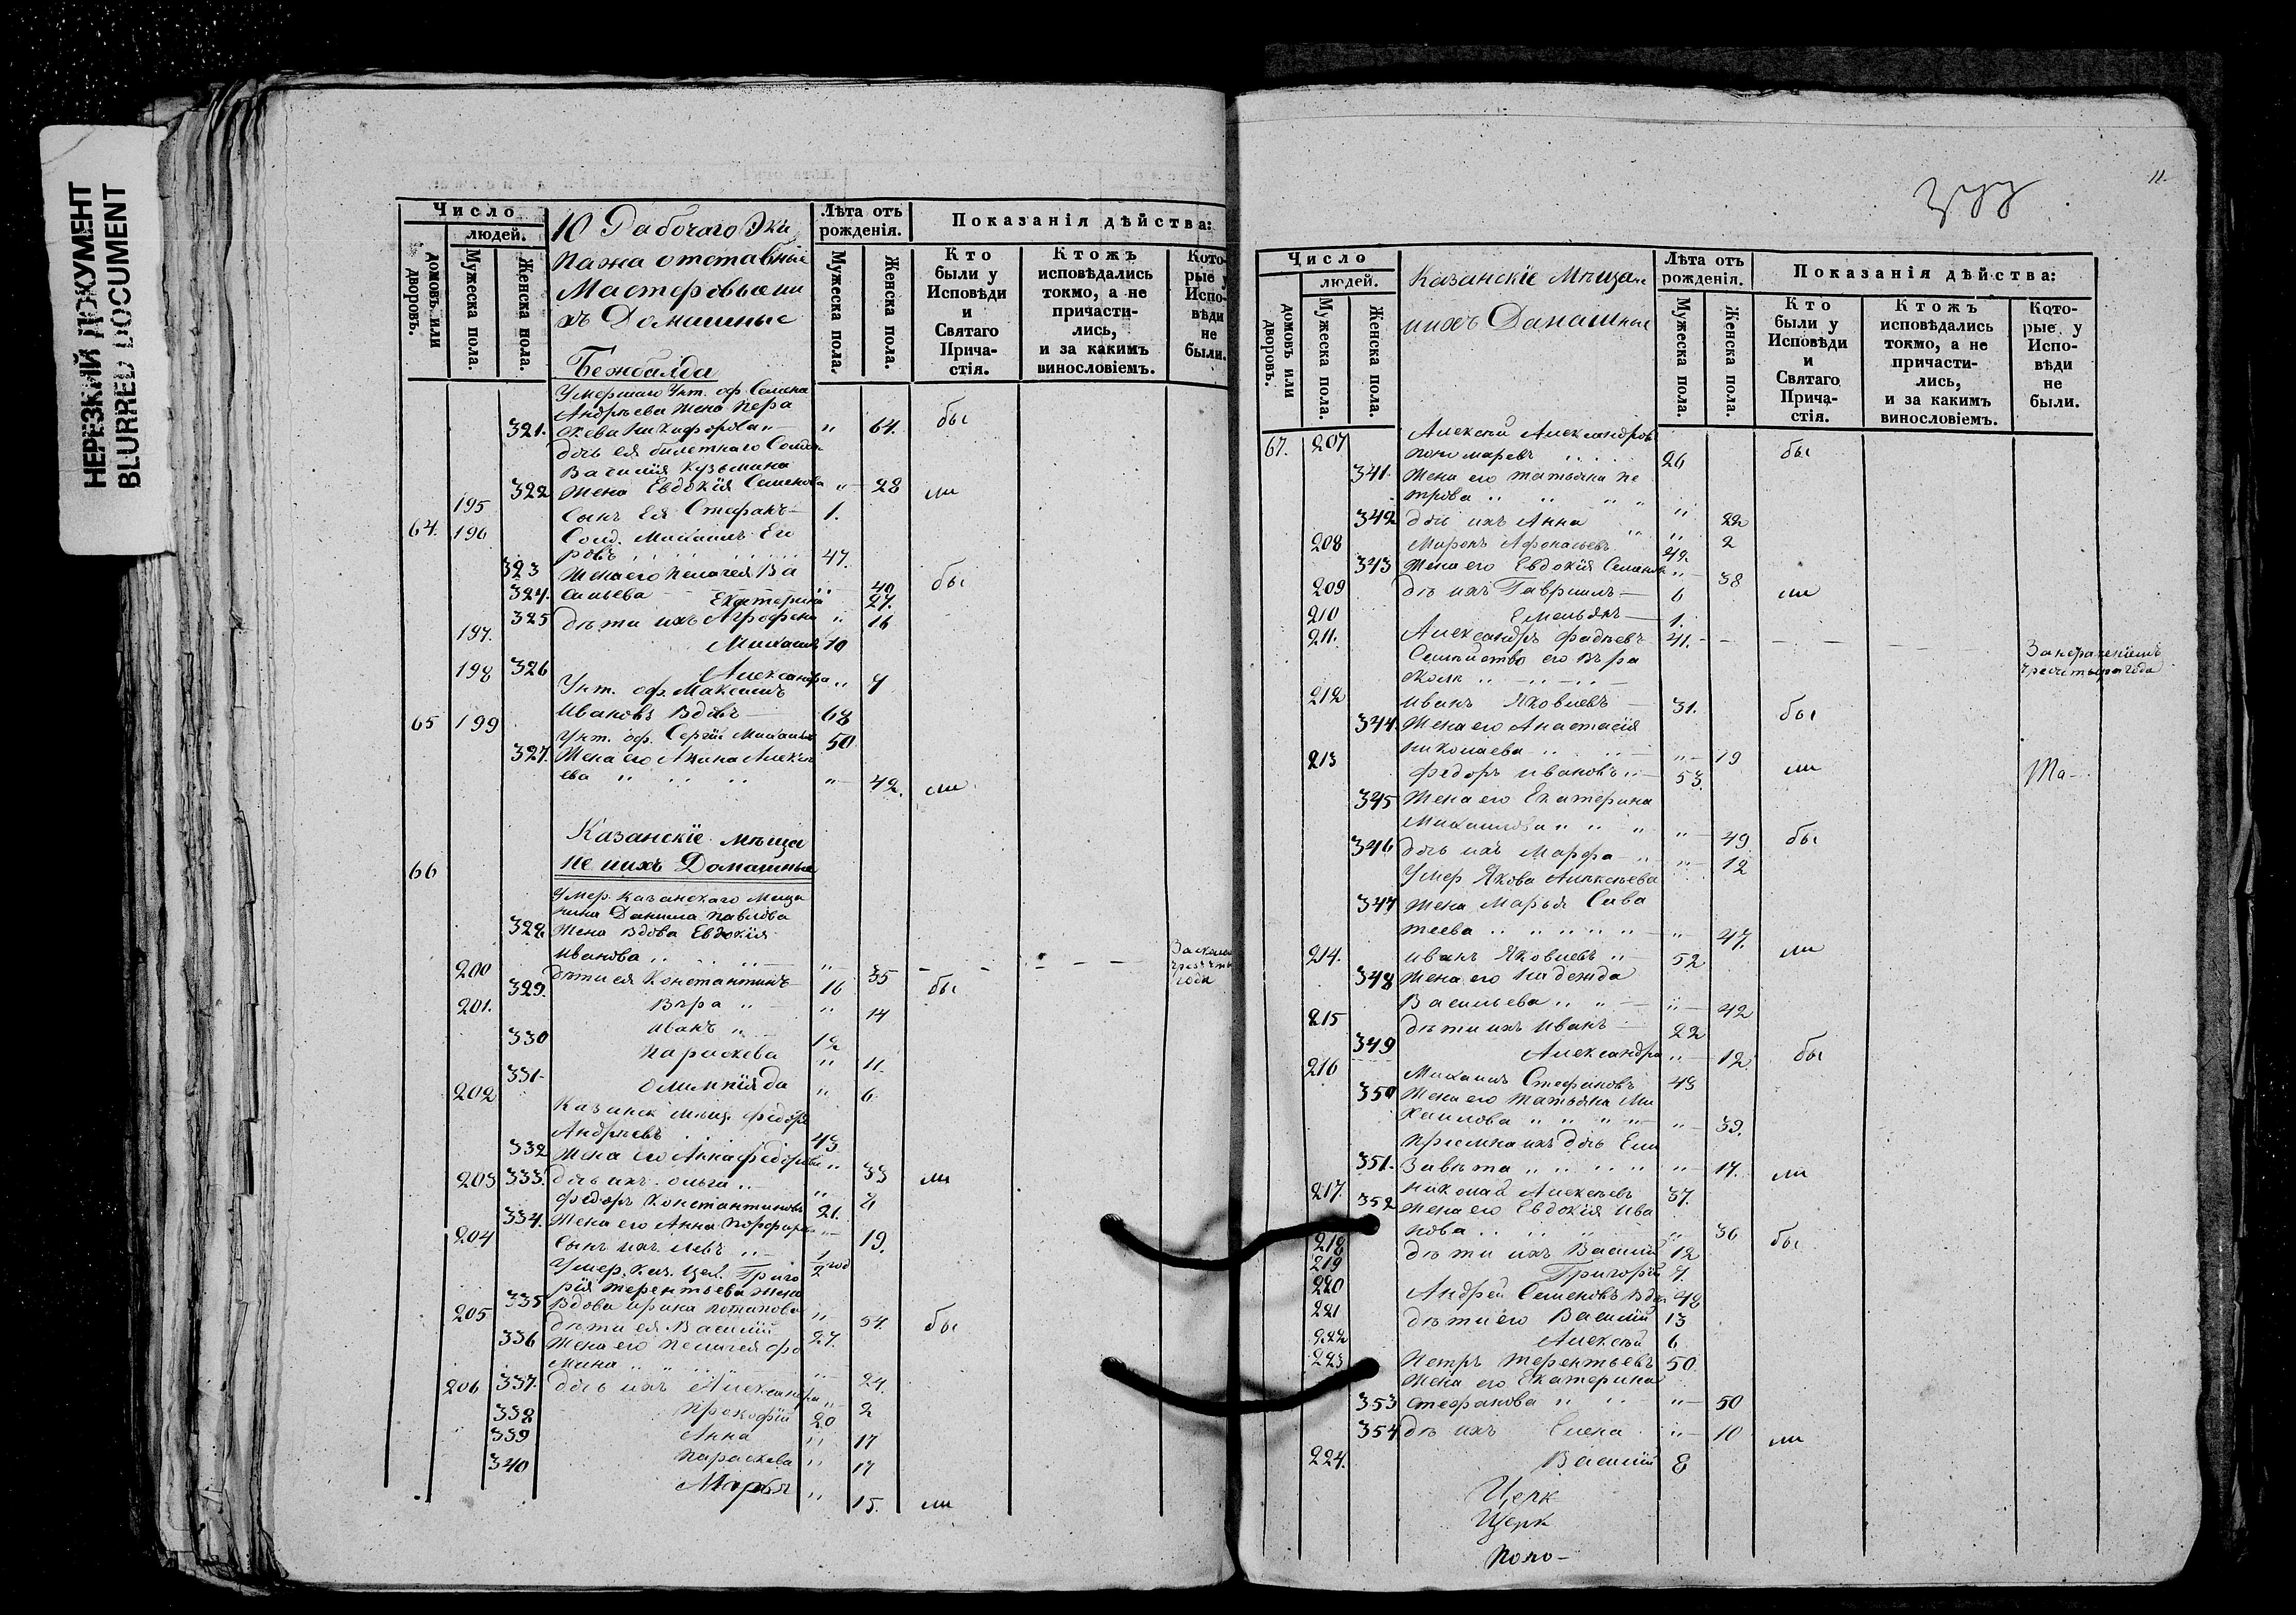 НЕРЕЗКИЙ ДОКУМЕНТ
BLURRED DOCUMENT
Число
людей.
домовъ или дворовъ.
Мужеска пола.
Женска пола.
10 Рабочаго Эки
пажа отставные
Мастеровые и
ихъ Домашные
Лѣта отъ рожденія.
Мужеска пола.
Женска пола.
Показанія дѣйства:
Кто были у Исповѣди и Святаго Прича- стія.
Ктожъ исповѣдались токмо, а не причасти- лись, и за какимъ винословіемъ.
Кото- рые у Испо- вѣди не были.
Умершаго Унт. оф. Семена
Андрѣева жена Пера
321. скева Никифорова „ 64. бы
дочь ея билетнаго Солда
Василія Кузьмина
322 жена Евдокія Семенова „ 28 ли
195 Сынъ Ея Стефанъ 1.
64. 196 Солд. Михаилъ Его
ровъ 47.
323 Жена его Пелагея Ва
сильева „ 40 бы
324. Екатерина 27.
325 дѣти ихъ Агрофена „ 16
197. Михаилъ 10
198 326 Александра „ 7
Унт. оф. Максимъ
65 199 Ивановъ Вдовъ 68
Унт. оф. Сергій Михаил 50
327. Жена его Акина Алексѣ
ева „ 42. ли
Казанскіе мѣща
66 не ихъ Домашные
Умер. Казанскаго Меща
нина Данила Павлова
328. Жена Вдова Евдокія
Иванова „ 35
200 дѣти ея Константинъ 16 бы
329. Вѣра „ 14
201. Иванъ 12
330 Параскева „ 11.
331. Олимпіяда „ 6
202 Казанск. мѣщ. Федоръ
Андрѣевъ 43
332 Жена его Анна Федорова „ 33 ли
203 333. дочь ихъ Ольга „
Федоръ Константиновъ 21.
334. Жена его Анна Порфирье „ 19.
204 Сынъ ихъ Левъ
Умер. Каз. Цех. Григо
рія Терентьева жена
335 Вдова Ирина Потапова „ 54. бы
205 дѣти ея Василій 27.
336 Жена его Пелагея Фо
мина „ 24.
206 337. дочь ихъ Александра „ 2
338 Прокофій 20
339 Анна „ 17
340 Параскева „ 17
Марья „ 15. ли
11.
377
Число
людей.
домовъ или дворовъ.
Мужеска пола.
Женска пола.
Казанскіе Мѣща
Лѣта отъ рожденія.
Мужеска пола.
Женска пола.
Показанія дѣйства:
Кто были у Исповѣди и Святаго Прича- стія.
Ктожъ исповѣдались токмо, а не причасти- лись, и за какимъ винословіемъ.
Кото- рые у Испо- вѣди не были.
67. 207 Алексѣй Александровъ
Пономаревъ 26 бы
341. Жена его Татьяна Пе
трова „ 22
342 дочь ихъ Анна „ 2
208 Миронъ Афонасьевъ 42.
343 Жена его Евдокія Семенова „ 38
209 дѣ ихъ Гавриилъ 6 ли
210 Емельянъ 1.
211. Александръ Фадѣевъ 41.
Семейство его въ ра
сколѣ
212 Иванъ Яковлевъ 31. бы
344. Жена его Анастасія
Николаева „ 19
213 Федоръ Ивановъ 53. ли
345 Жена его Екатерина
Михаилова „ 49. бы
346 дочь ихъ Марфа „ 12
Умер. Якова Алексѣева
347 Жена Марья Сава
теева „ 47.
214. Иванъ Яковлевъ 52 ли
348 Жена его Надежда
Васильева „ 42
215 дѣти ихъ Иванъ 22
349 Александра „ 12 бы
216 Михаилъ Стефановъ 43
350 Жена его Татьяна Ми
хаилова „ 39.
пріемна ихъ дочь Ели
351. завѣта „ 17. ли
217. Николай Алексѣевъ 37.
352 Жена его Евдокія Ива
нова „ 36 бы
218 дѣти ихъ Василій 12
219 Григорій 7.
220 Андрей Семеновъ Вдов 42
221 дѣти его Василій 13
222 Алексѣй 6
223 Петръ Терентьевъ 50
Жена его Екатерина
353 Стефанова „ 50
354 дѣ ихъ Елена „ 10 ли
224. Василій 8
Церк